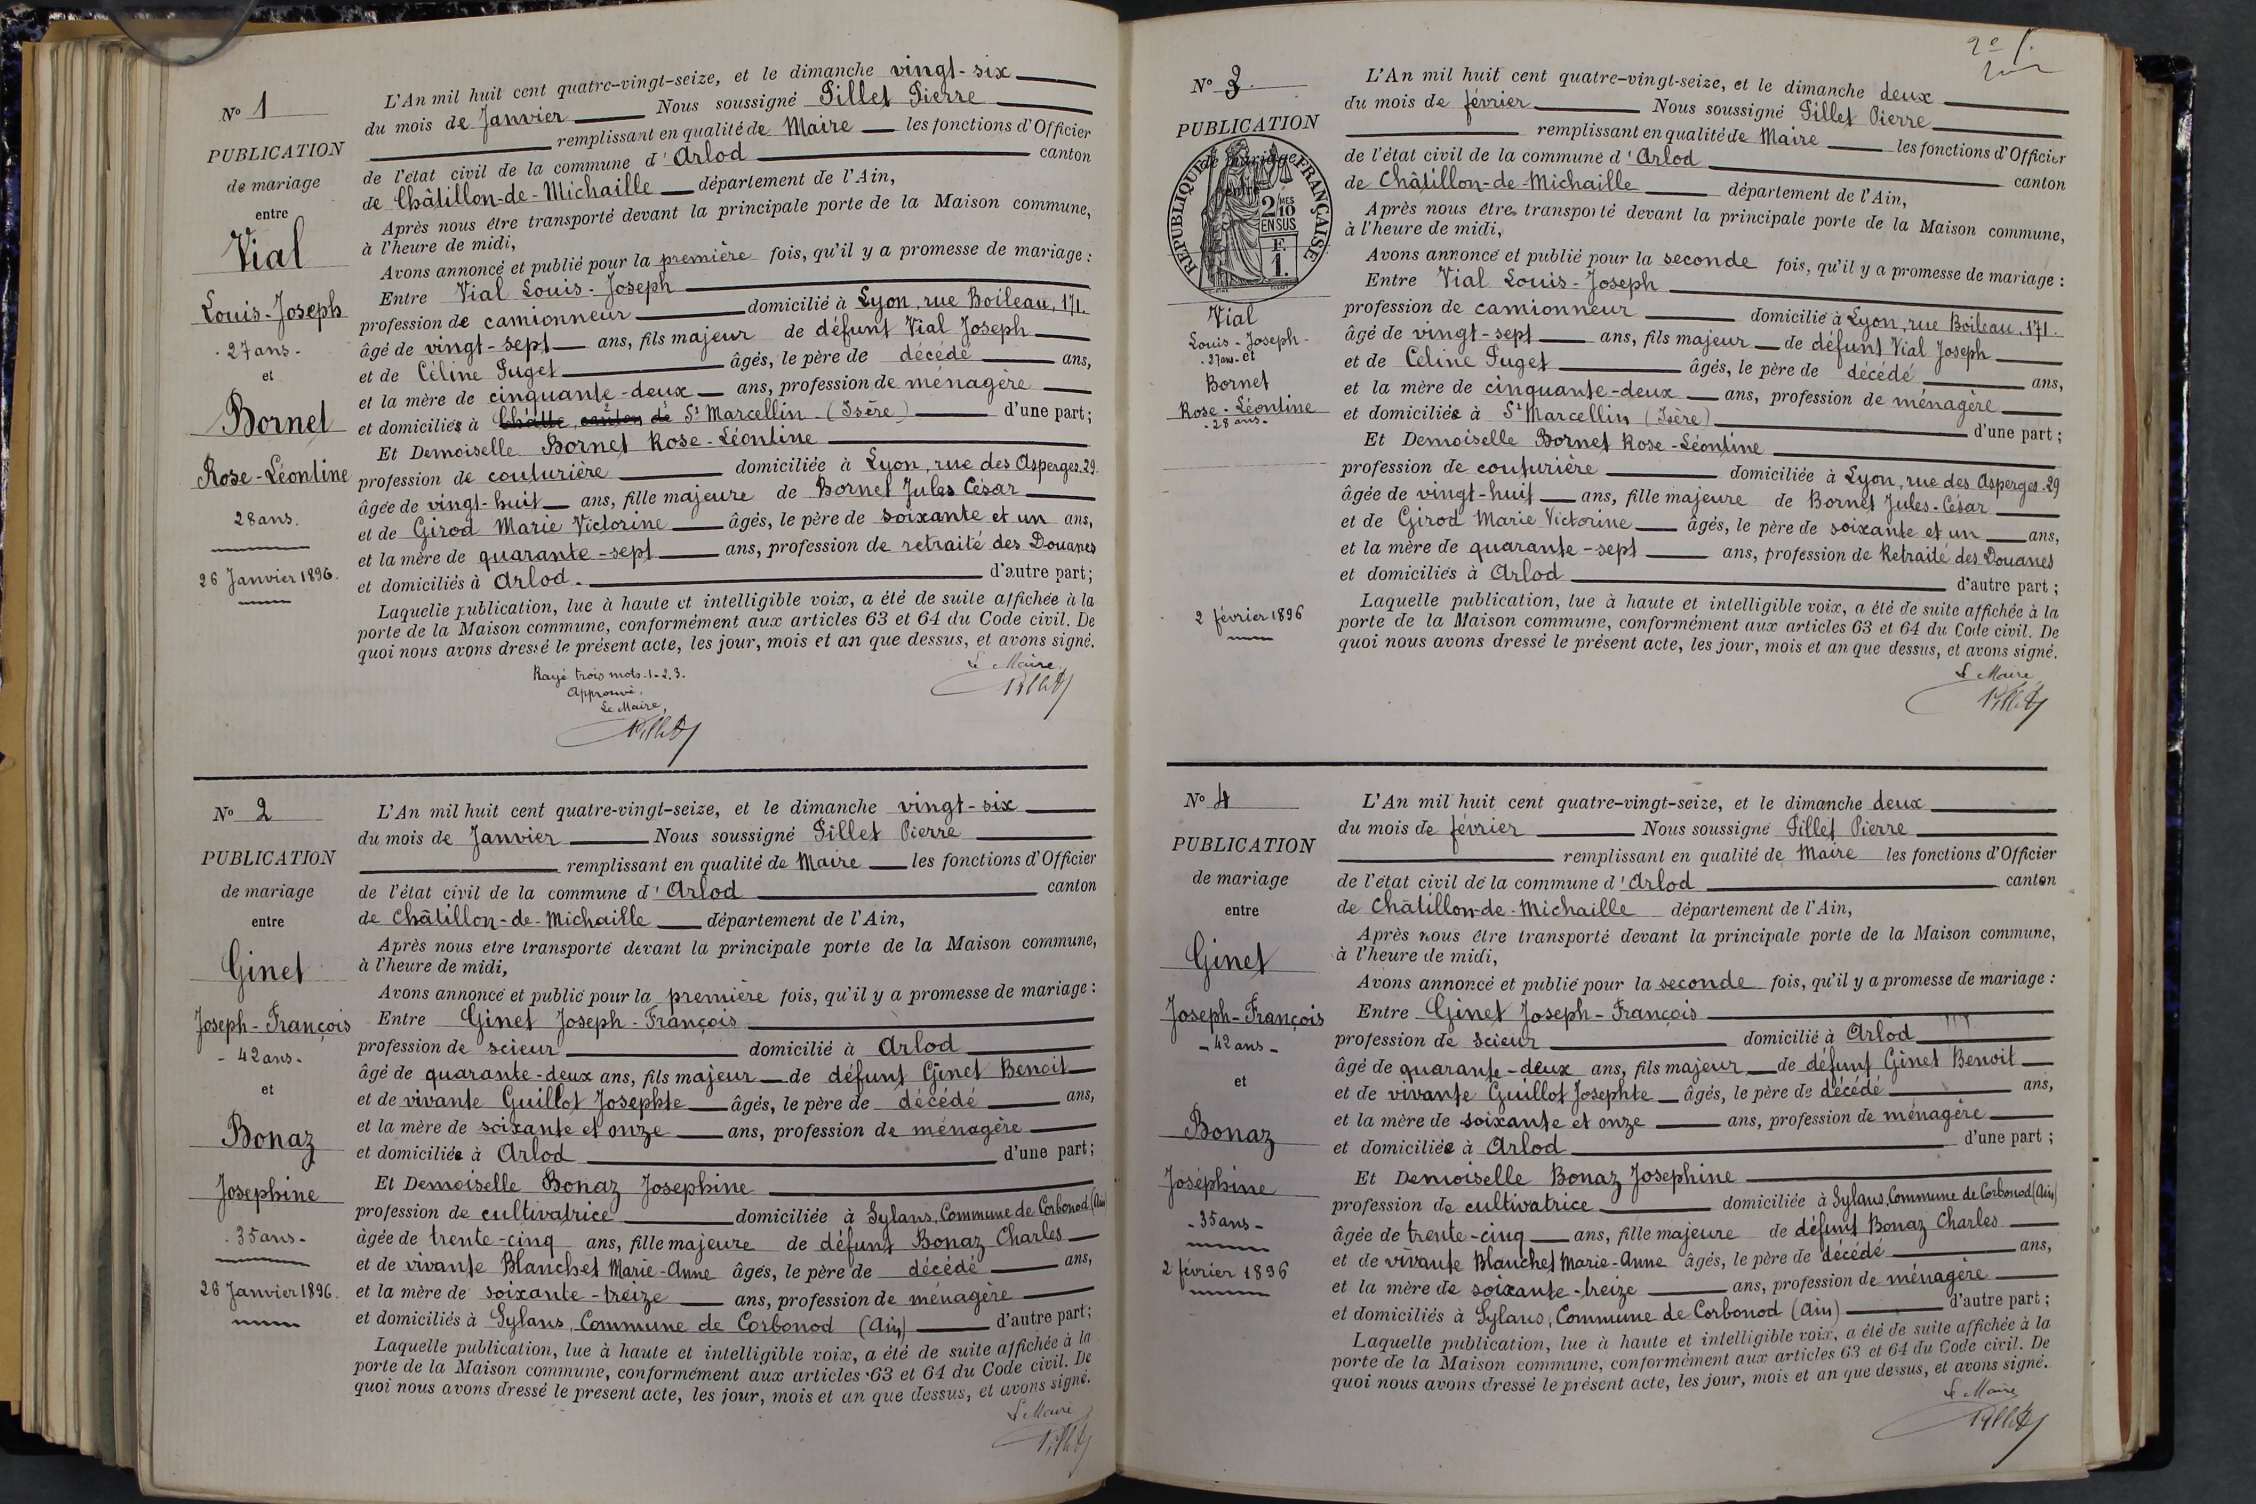 N° 1
PUBLICATION
de mariage
entre
Vial
Louis-Joseph
- 27 ans -
et
Bornet
Rose-Léontine
28 ans.
26 Janvier 1896.
L'An mil huit cent quatre-vingt-seize, et le dimanche vingt-six
du mois de Janvier Nous soussigné Pillet Pierre
remplissant en qualité de Maire les fonctions d'Officier
de l'état civil de la commune d'Arlod canton
de Châtillon-de-Michaille département de l'Ain,
Après nous être transporté devant la principale porte de la Maison commune,
à l'heure de midi,
Avons annoncé et publié pour la première fois, qu'il y a promesse de mariage :
Entre Vial Louis-Joseph
profession de camionneur domicilié à Lyon, rue Boileau, 171.
âgé de vingt-sept ans, fils majeur de défunt Vial Joseph
et de Céline Puget âgés, le père de décédé ans,
et la mère de cinquante-deux ans, profession de ménagère
et domiciliés à Châtte, canton de St Marcellin (Isère) d'une part;
Et Demoiselle Bornet Rose-Léontine
profession de couturière domiciliée à Lyon, rue des Asperges. 29.
âgée de vingt-huit ans, fille majeure de Bornet Jules César
et de Girod Marie Victorine âgés, le père de soixante et un ans,
et la mère de quarante-sept ans, profession de retraité des Douanes
et domiciliés à Arlod. d'autre part;
Laquelle publication, lue à haute et intelligible voix, a été de suite affichée à la
porte de la Maison commune, conformément aux articles 63 et 64 du Code civil. De
quoi nous avons dressé le présent acte, les jour, mois et an que dessus, et avons signé.
Rayé trois mots. 1-2.3.
Approuvé.
Le Maire,
Pillet
Le Maire,
Pillet
N° 2
PUBLICATION
de mariage
entre
Ginet
Joseph-François
- 42 ans -
et
Bonaz
Josephine
- 35 ans -
26 Janvier 1896.
L'An mil huit cent quatre-vingt-seize, et le dimanche vingt-six
du mois de Janvier Nous soussigné Pillet Pierre
remplissant en qualité de Maire les fonctions d'Officier
de l'état civil de la commune d'Arlod canton
de Châtillon-de-Michaille département de l'Ain,
Après nous etre transporté devant la principale porte de la Maison commune,
à l'heure de midi,
Avons annoncé et publié pour la première fois, qu'il y a promesse de mariage :
Entre Ginet Joseph-François
profession de scieur domicilié à Arlod
âgé de quarante-deux ans, fils majeur de défunt Ginet Benoit
et de vivante Guillot Josephte âgés, le père de décédé ans,
et la mère de soixante et onze ans, profession de ménagère
et domiciliée à Arlod d'une part;
Et Demoiselle Bonaz Josephine
profession de cultivatrice domiciliée à Sylans, Commune de Corbonod (Ain)
âgée de trente-cinq ans, fille majeure de défunt Bonaz Charles
et de vivante Blanchet Marie-Anne âgés, le père de décédé ans,
et la mère de soixante-treize ans, profession de ménagère
et domiciliés à Sylans, Commune de Corbonod (Ain) d'autre part;
Laquelle publication, lue à haute et intelligible voix, a été de suite affichée à la
porte de la Maison commune, conformément aux articles 63 et 64 du Code civil. De
quoi nous avons dressé le présent acte, les jour, mois et an que dessus, et avons signé.
Le Maire
Pillet
2e f.
N° 3
PUBLICATION
de mariage
entre
RÉPUBLIQUE FRANÇAISE
2/10 MES
EN SUS
F.
1.
Vial
Louis-Joseph-
- 27 ans - et
Bornet
Rose-Léontine
- 28 ans -
2 février 1896
L'An mil huit cent quatre-vingt-seize, et le dimanche deux
du mois de février Nous soussigné Pillet Pierre
remplissant en qualité de Maire les fonctions d'Officier
de l'état civil de la commune d'Arlod canton
de Châtillon-de-Michaille département de l'Ain,
Après nous être transporté devant la principale porte de la Maison commune,
à l'heure de midi,
Avons annoncé et publié pour la seconde fois, qu'il y a promesse de mariage :
Entre Vial Louis-Joseph
profession de camionneur domicilié à Lyon, rue Boileau. 171.
âgé de vingt-sept ans, fils majeur de défunt Vial Joseph
et de Céline Puget âgés, le père de décédé ans,
et la mère de cinquante-deux ans, profession de ménagère
et domiciliée à St Marcellin (Isère) d'une part;
Et Demoiselle Bornet Rose-Léontine
profession de couturière domiciliée à Lyon, rue des Asperges. 29
âgée de vingt-huit ans, fille majeure de Bornet Jules-César
et de Girod Marie Victorine âgés, le père de soixante et un ans,
et la mère de quarante-sept ans, profession de Retraité des Douanes
et domiciliés à Arlod d'autre part;
Laquelle publication, lue à haute et intelligible voix, a été de suite affichée à la
porte de la Maison commune, conformément aux articles 63 et 64 du Code civil. De
quoi nous avons dressé le présent acte, les jour, mois et an que dessus, et avons signé.
Le Maire,
Pillet
N° 4
PUBLICATION
de mariage
entre
Ginet
Joseph-François
- 42 ans -
et
Bonaz
Joséphine
- 35 ans -
2 février 1896
L'An mil huit cent quatre-vingt-seize, et le dimanche deux
du mois de février Nous soussigné Pillet Pierre
remplissant en qualité de Maire les fonctions d'Officier
de l'état civil de la commune d'Arlod canton
de Châtillon-de-Michaille département de l'Ain,
Après nous être transporté devant la principale porte de la Maison commune,
à l'heure de midi,
Avons annoncé et publié pour la seconde fois, qu'il y a promesse de mariage :
Entre Ginet Joseph-François
profession de scieur domicilié à Arlod
âgé de quarante-deux ans, fils majeur de défunt Ginet Benoit
et de vivante Guillot Josephte âgés, le père de décédé ans,
et la mère de soixante et onze ans, profession de ménagère
et domiciliée à Arlod d'une part;
Et Demoiselle Bonaz Josephine
profession de cultivatrice domiciliée à Sylans, Commune de Corbonod (Ain)
âgée de trente-cinq ans, fille majeure de défunt Bonaz Charles
et de vivante Blanchet Marie-Anne âgés, le père de décédé ans,
et la mère de soixante-treize ans, profession de ménagère
et domiciliés à Sylans, Commune de Corbonod (Ain) d'autre part;
Laquelle publication, lue à haute et intelligible voix, a été de suite affichée à la
porte de la Maison commune, conformément aux articles 63 et 64 du Code civil. De
quoi nous avons dressé le présent acte, les jour, mois et an que dessus, et avons signé.
Le Maire
Pillet